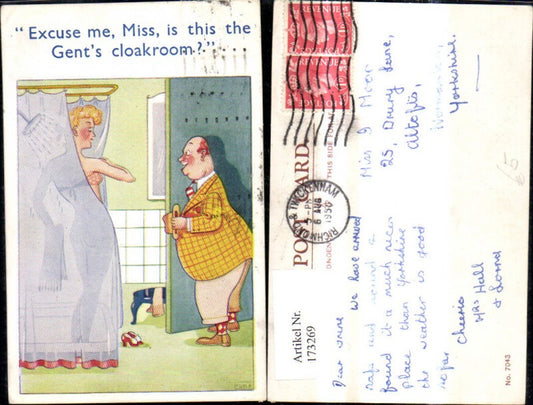 "Excuse me, Miss, is this the
Gent's cloakroom?"
POST CARD
THIS SIDE FOR
REVENUE
REVENUE
RICHMOND & TWICKENHAM
6 AUG
1956
Miss I Moor
25, Drury Lane,
Altofts,
Yorkshire.
Dear we have arrived
safe and sound &
found it a much nicer
place than Yorkshire
the weather is good
so far
Cheerio
Mrs Hall
& Lorna
Artikel Nr.
173269
No. 7043